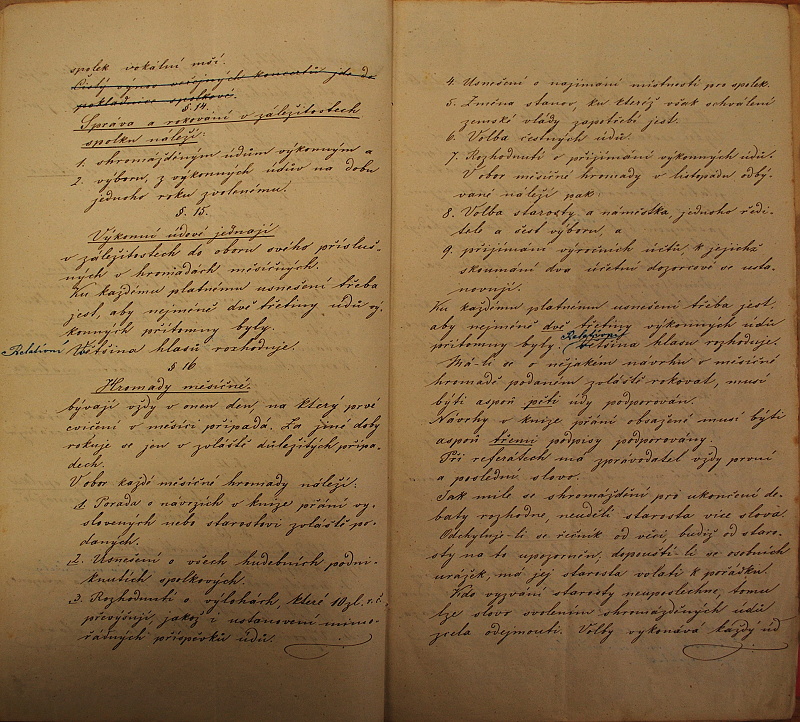 spolek vokální mší.
Čistý výnos veřejných koncertů jde do
pokladnice spolkové.
§ 14.
Správa a rokování v záležitostech
spolku náleží:
1. shromážděným údům výkonným a
2. výboru, z výkonných údův na dobu
jednoho roku zvolenému.
§. 15.
Výkonní údové jednají
v záležitostech do oboru svého přísluš-
ných v hromadách měsíčných.
Ku každému platnému usnešení třeba
jest, aby nejméně dvě třetiny údů vý-
konných přítomny byly.
Relativní Většina hlasů rozhoduje.
§ 16
Hromady měsíčné.
bývají vždy v onen den, na který prvé
cvičení v měsíci připadá. Za jiné doby
rokuje se jen v zvláště důležitých přípa-
dech.
V obor každé měsíčné hromady náleží:
1. Porada o návrzích v knize přání vy-
slovených nebo starostovi zvláště po-
daných.
2. Usnešení o všech hudebních podni-
knutích spolkových.
3. Rozhodnutí o výlohách, které 10 zl. r. č.
převyšují, jakož i ustanovení mimo-
řádných příspěvků údů.
4. Usnešení o najímání místností pro spolek.
5. Změna stanov, ku kteréž však schválení
zemské vlády zapotřebí jest.
6. Volba čestných údů.
7. Rozhodnutí o přijímání výkonných údů.
V obor měsíčné hromady v listopádu odbý-
vané náleží pak:
8. Volba starosty a náměstka, jednoho ředi-
tele a šest výborů, a
9. přijímání výročních účtů, k jejichž
skoumání dva účetní dozorcové se usta-
novují.
Ku každému platnému usnešení třeba jest,
aby nejméně dvě třetiny výkonných údů
přítomny byly. Relativní Většina hlasů rozhoduje.
Má-li se o nějakém návrhu v měsíčné
hromadě podaném zvláště rokovat, musí
býti aspoň pěti údy podporován.
Návrhy v knize přání obsažené musí býti
aspoň třemi podpisy podporovány.
Při referátech má zpravodatel vždy první
a poslední slovo.
Jak mile se shromáždění pro ukončení de-
baty rozhodne, neudělí starosta více slova.
Odchyluje-li se řečník od věci, budiž od staro-
sty na to upozorněn, dopouští-li se osobních
urážek, má jej starosta volati k pořádku.
Kdo vyzvání starosty neuposlechne, tomu
lze slovo svolením shromážděných údů
zcela odejmouti. Volby vykonává každý úd